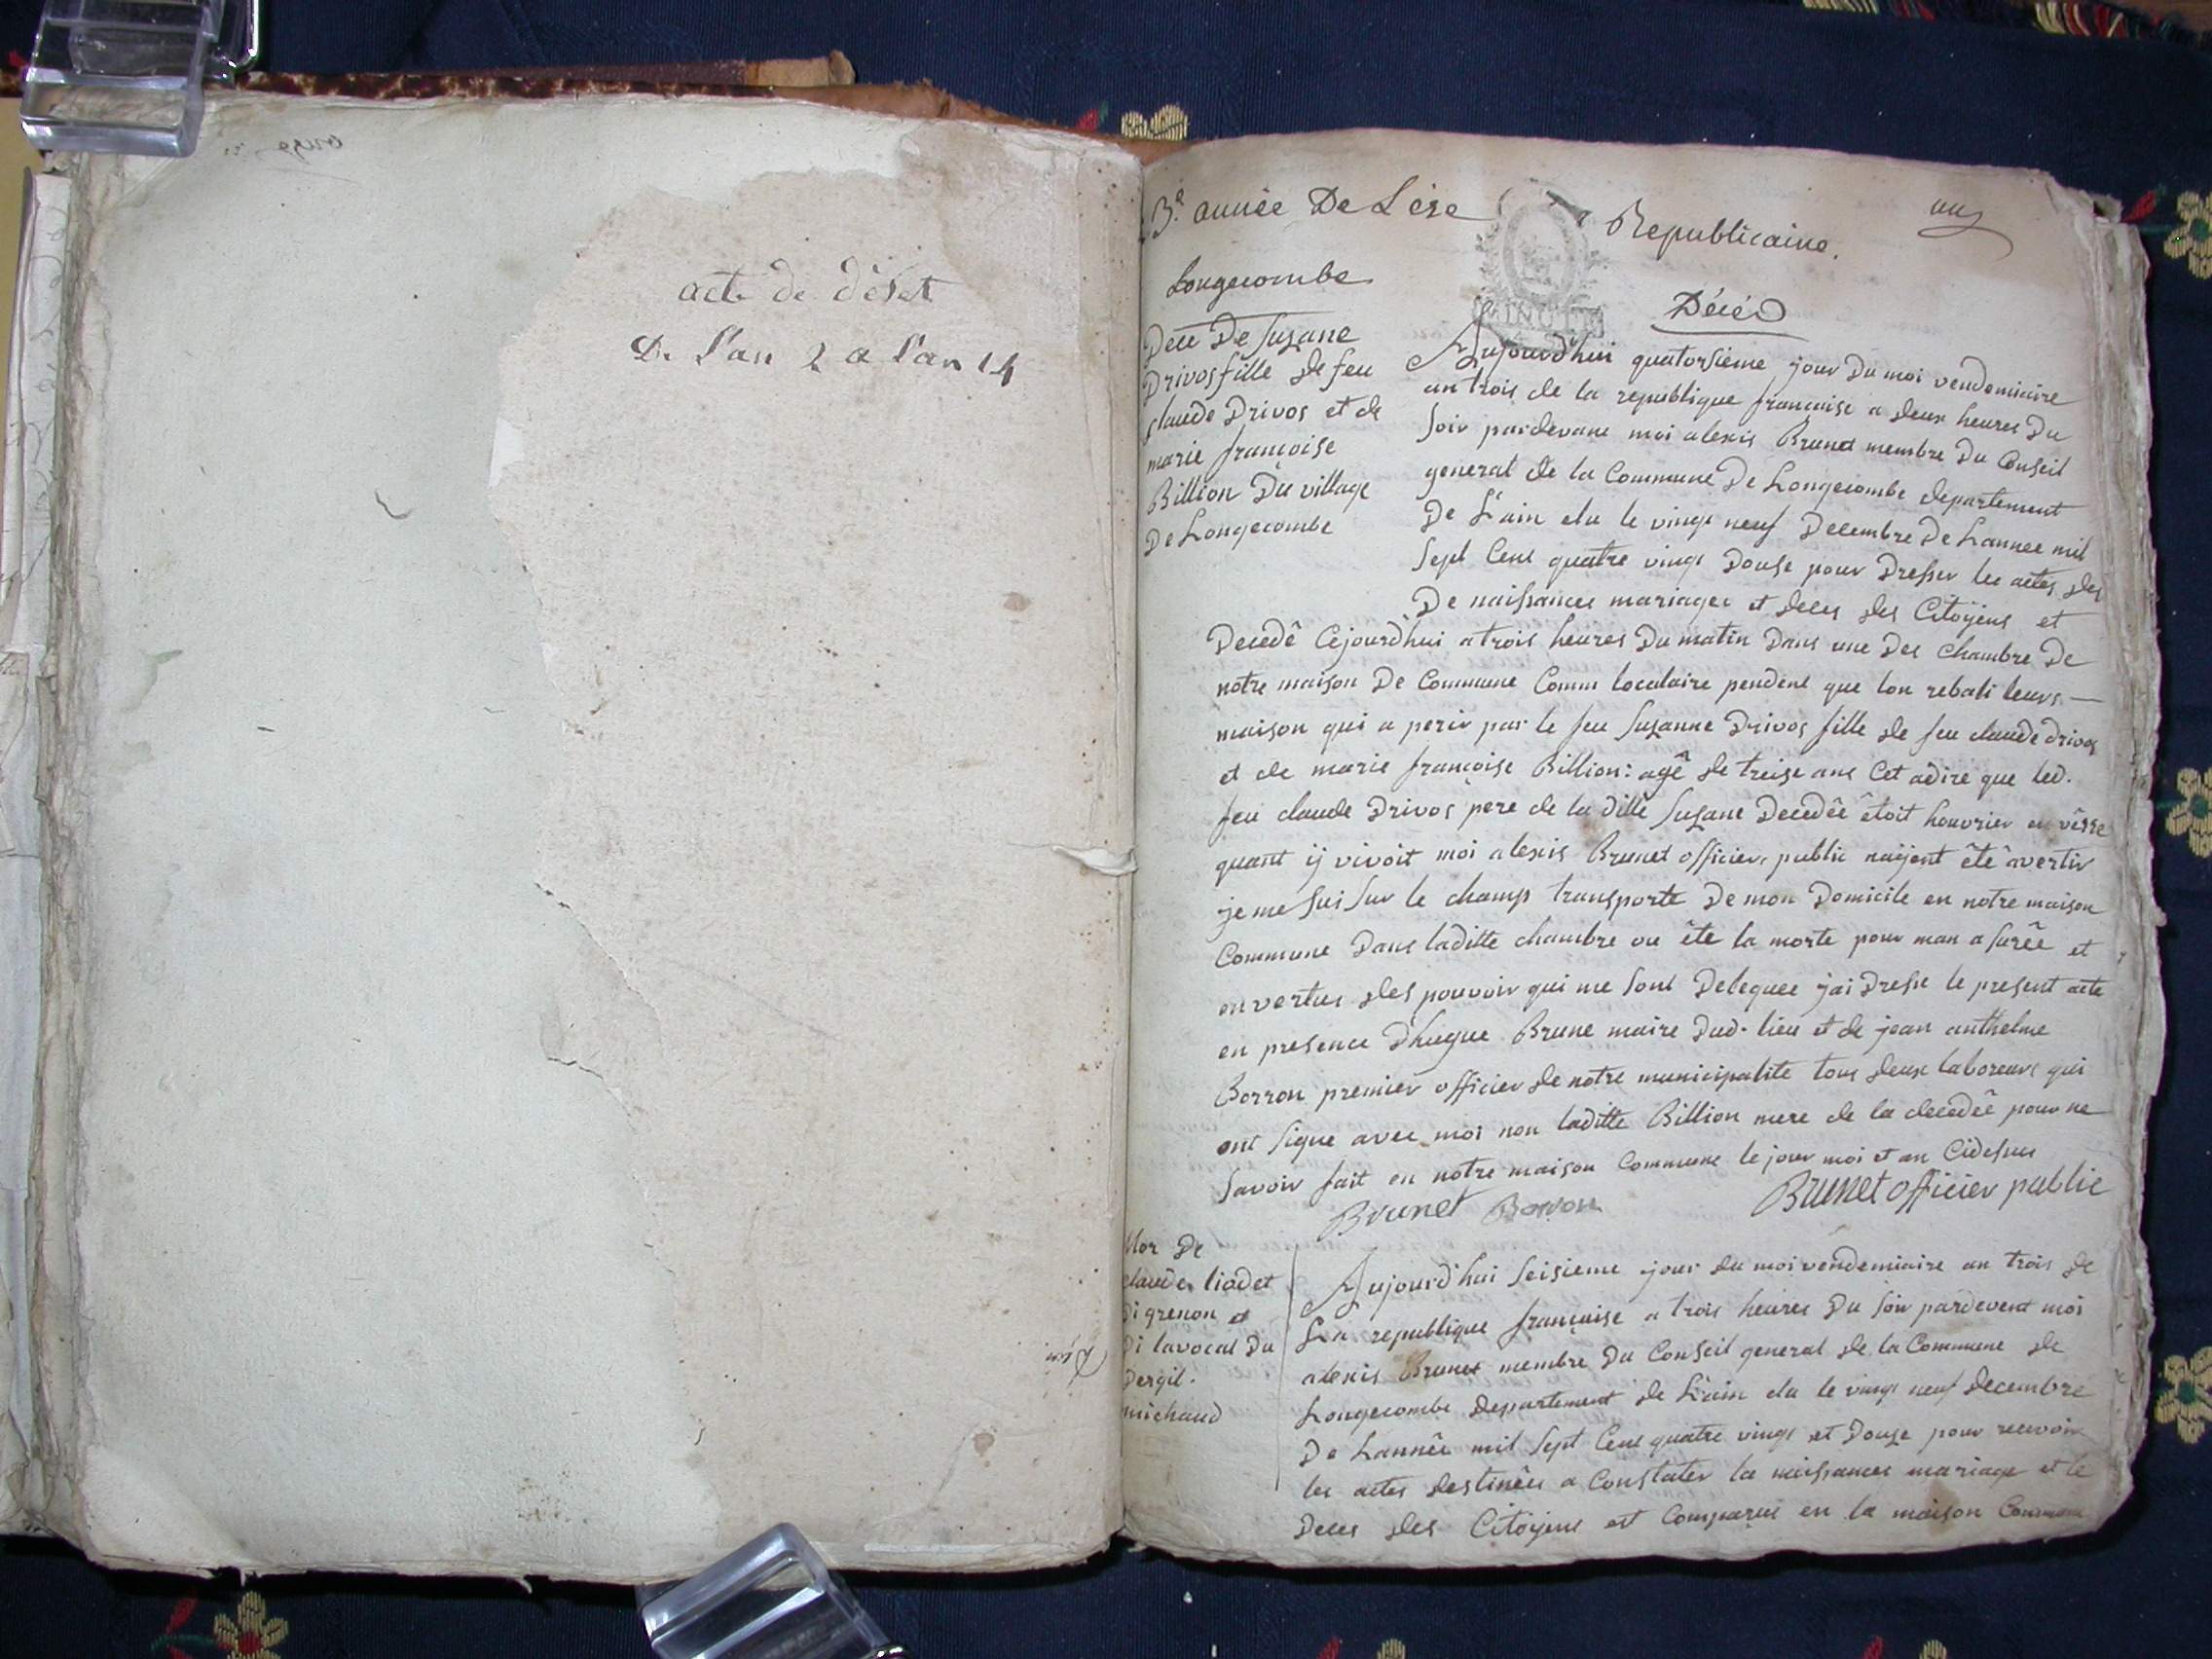 acte de décet
De l'an 2 a l'an 14
3.e année De L'ére
Republicaine.
un
Longecombe
Décéd
Dece De Suzane
Drivos fille de feu
claude Drivos et de
marie francoise
Billion Du village
De Longecombe
Aujourd'hui quatorsieme jour Du moi vendemiaire
an trois de la republique francaise a deux heures Du
soir pardevant moi alexis Brunet membre Du Conseil
general de la Commune De Longecombe departement
De L'ain elu le vingt neuf Decembre De Lannee mil
sept Cent quatre vingt Douse pour Dresser les actes des
De naissances mariages et deces des Citoÿens et
Decedê Cejourd'hui a trois heures Du matin Dans une Des chambre De
notre maison De Commune Comm locataire pendent que lon rebati leurs
maison qui a perir par le feu Suzanne Drivos fille de feu claude drivos
et de marie francoise Billion: agê de treise ans Cet adire que led.
feu claude Drivos pere de la ditte Suzane Decedêe êtoit houvrier en vêrre
quant ij vivoit moi alexis Brunet officier public naijent êtê avertir
je me sui sur le champ transporte De mon Domicile en notre maison
Commune Dans laditte chambre ou ête la morte pour man asurêe et
en vertus des pouvoir qui me sont Deleguee jai Dresse le present acte
en presence D'hugue Brune maire Dud. lieu et de jean anthelme
Borron premier officier de notre municipalite tous deux laboreurs qui
ont signe avec moi non laditte Billion mere de la decedêe pour ne
savoir fait en notre maison Commune le jour moi et an Cidesus
Brunet Borron Brunet officier public
Mor De
claude liodet
Di grenon et
Di lavocat Du
Dergil.
michaud
Aujourd'hui seisieme jour du moi vendemiaire an trois de
La republique française a trois heures Du soir pardevent moi
alexis Brunet membre Du Conseil general de la Commune de
Longecombe Departement de L'ain elu le vingt neuf decembre
De Lannêe mil sept Cent quatre vingt et Douze pour recevoir
les actes destinêes a Constater la naissances mariage et le
Deces des Citoÿens est Comparus en la maison Commune